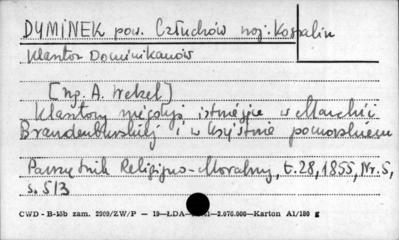 DYMINEK pow. Człuchów woj. Koszalin
Klasztor Dominikanów
[Np. A. Wekel]
Klasztory niegdyś istniejące w Marchii
Brandenburskiej i w Księstwie pomorskiem
Pamiętnik Religijno-Moralny, t.28, 1855, Nr.5,
s. 513
CWD - B-15b zam. 2909/ZW/P — 19—ŁDA— —2.070.000—Karton A1/180 g